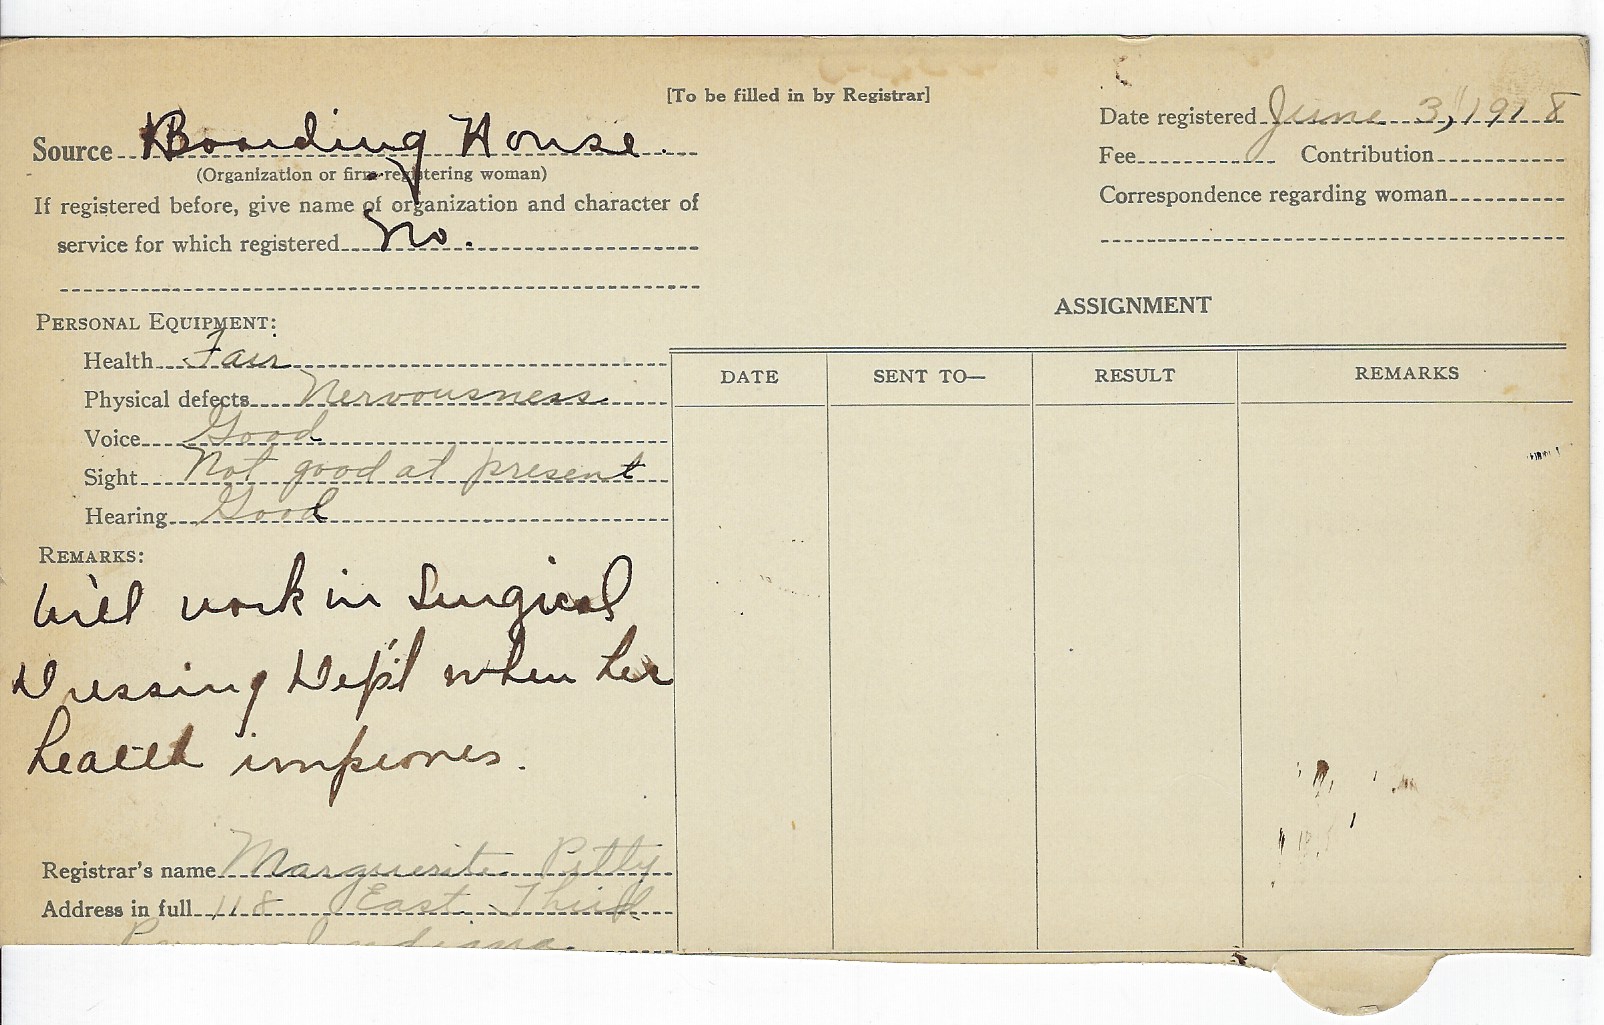 [To be filled in by Registrar]
Source Boarding House.
(Organization or firm registering woman)
If registered before, give name of organization and character of
service for which registered No.
Date registered June 3, 1918
Fee Contribution
Correspondence regarding woman
PERSONAL EQUIPMENT:
Health Fair
Physical defects Nervousness
Voice Good
Sight Not good at present
Hearing Good
REMARKS:
Will work in Surgical
Dressing Dep't when her
health improves.
Registrar's name Marguerite Petty
Address in full 118 East Third
Indiana.
ASSIGNMENT
DATE SENT TO— RESULT REMARKS